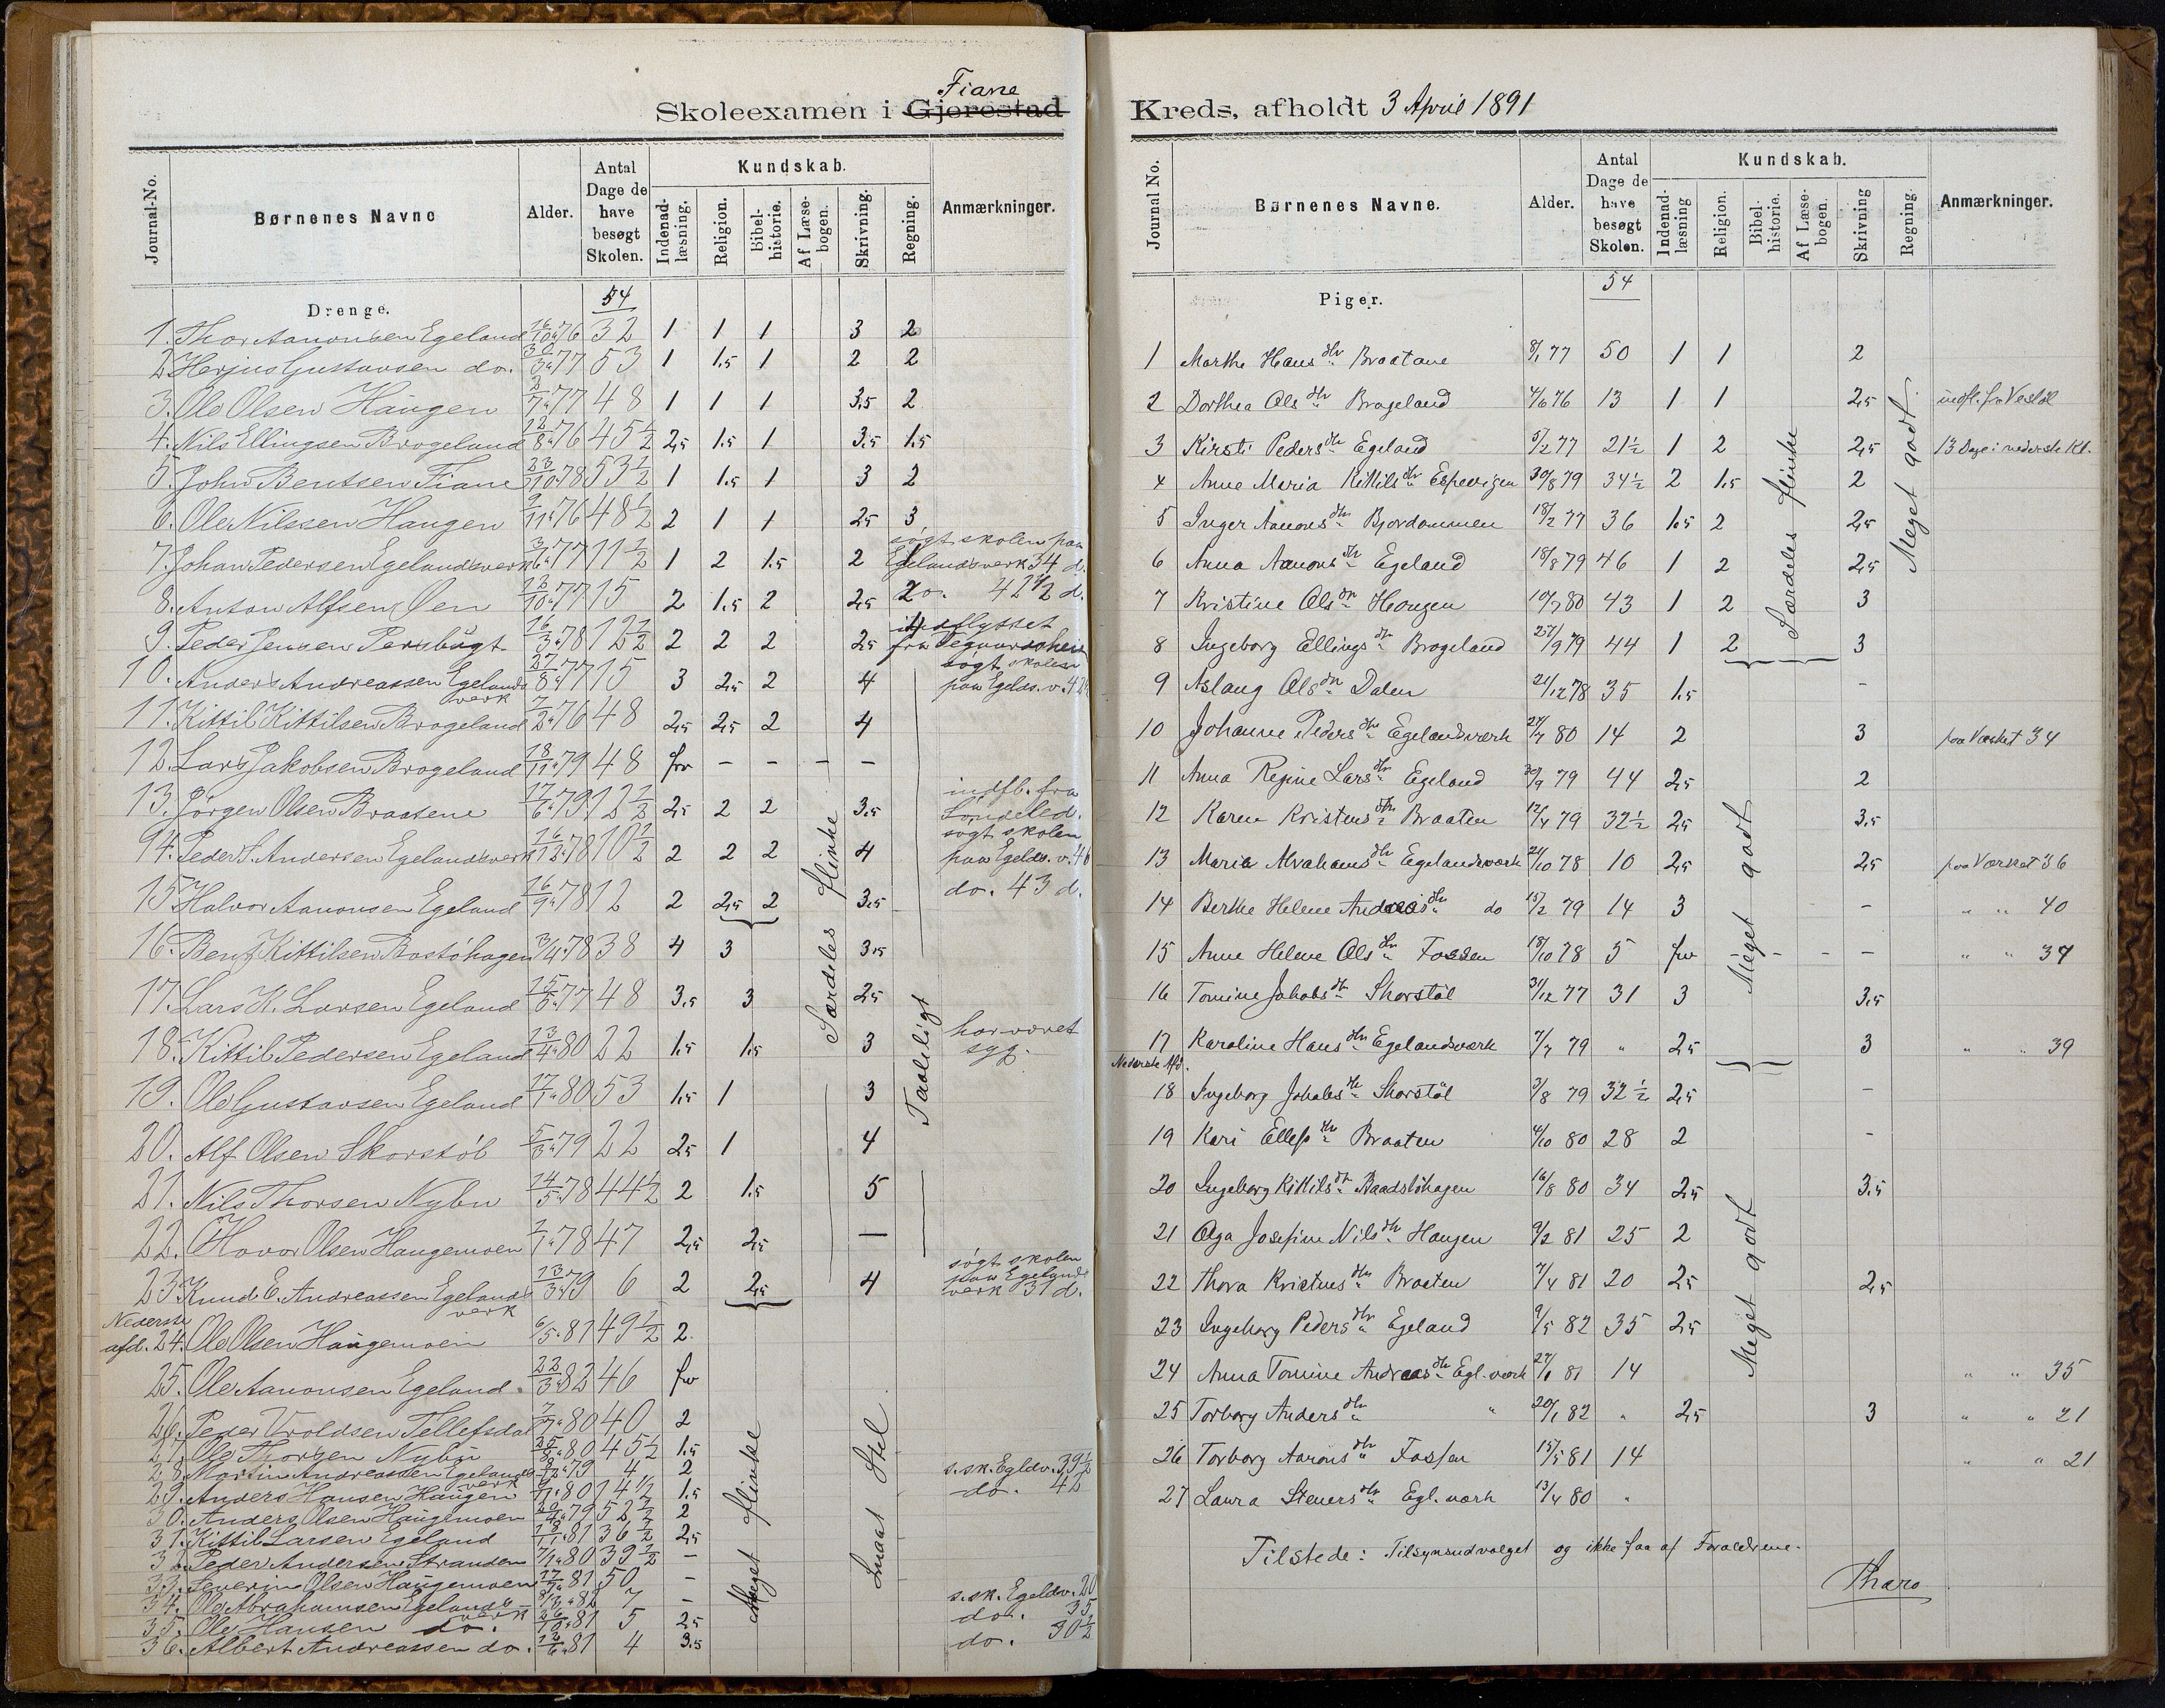 Fiane
Skoleexamen i Gjerestad
Journal-No.
Børnenes Navne
Alder.
Antal Dage de have besøgt Skolen.
Kundskab.
Indenad-læsning.
Religion.
Bibel-historie.
Af Læse-bogen.
Skrivning.
Regning.
Anmærkninger.
Drenge.
54
1. Thor Aanonsen Egeland 16/10 76 32 1 1 1 3 2
2 Herjus Gustavsen do. 30/3 77 53 1 1.5 1 2 2
3. Ole Olsen Haugen 2/7 77 48 1 1 1 3,5 2
4. Nils Ellingsen Brogeland 12/8 76 45 1/2 2,5 1.5 1 3,5 1.5
5. John Bentsen Fiane 23/10 78 53 1/2 1 1.5 1 3 2
6. Ole Nilssen Haugen 9/11 76 48 1/2 2 1 1 2,5 3
7. Johan Pedersen Egelandsverk 3/6 77 11 1/2 1 2 1.5 2 søgt skolen paa Egelandsverk 34 d.
8. Anton Alfsen Øen 13/10 77 15 2 1.5 2 2,5 do. 42 1/2 d.
9. Peder Jensen Persbugt 16/3 78 12 1/2 2 2 2 2,5 indflyttet fra Vegaardsheien
10. Anders Andreassen Egelandsverk 27/8 77 15 3 2,5 2 4 søgt skolen paa Egelds.v. 42
11. Kittil Kittilsen Brogeland 7/2 76 48 2,5 2,5 2 4
12. Lars Jakobsen Brogeland 18/11 79 48 fw - - - -
13. Jörgen Olsen Braatene 17/6 79 12 1/2 2,5 2 2 3.5 indfl. fra Söndeled.
14. Peder S. Andersen Egelandsverk 16/12 78 10 1/2 2 2 2 4 søgt skolen paa Egelds.v. 46
15 Halvor Aanonsen Egeland 16/9 78 12 2 2,5 2 3.5 do. 43 d.
16. Bent Kittilsen Bostöhagen 3/4 78 38 4 3 3,5
17. Lars K. Larsen Egeland 15/5 77 48 3,5 3 2,5
18. Kittil Pedersen Egeland 13/4 80 22 1.5 1.5 3 har været syg.
19. Ole Gustavsen Egeland 17/1 80 53 1.5 1 3
20. Alf Olsen Skorstöl 5/3 79 22 2,5 1 4
21. Nils Thorsen Nybu 14/5 78 44 1/2 2 1.5 5
22. Hovor Olsen Haugemoen 7/1 78 47 2,5 2,5 -
23 Knud E. Andreassen Egelandsverk 13/3 79 6 2 2,5 4 søgt skolen paa Egelandsverk 31 d.
Særdeles flinke
Taaleligt
Nederste afd. 24. Ole Olsen Haugemoen 6/5 81 49 1/2 2
25. Ole Aanonsen Egeland 22/3 82 46 fw
26. Peder Vroldsen Tellefsdal 7/7 80 40 2
27. Ole Thorsen Nybu 25/8 80 45 1/2 1.5
28. Martin Andreassen Egelandsverk 8/12 79 4 2 s.sk. Egldv. 39 1/2
29. Anders Hansen Haugen 80 14 1/2 1.5 do. 42
30. Anders Olsen Haugemoen 79 52 1/2 2
31. Kittil Larsen Egeland 18/1 81 36 1/2 2,5
32. Peder Andersen Stranden 80 39 1/2 -
33. Severin Olsen Haugemoen 17/7 81 50 -
34. Ole Abrahamsen Egelandsverk 82 7 - s.sk. Egeldv. 20
35. Ole Hansen do. 26/10 81 5 2,5 do. 35
36. Albert Andreassen do. 12/6 81 4 3.5 do. 30 1/2
Meget flinke
Smaat Stel
Kreds, afholdt 3 April 1891
Journal No.
Børnenes Navne.
Alder.
Antal Dage de have besøgt Skolen.
Kundskab.
Indenad-læsning
Religion.
Bibel-historie.
Af Læse-bogen.
Skrivning
Regning.
Anmærkninger.
Piger.
54
1 Marthe Hans dtr Braatane 8/1 77 50 1 1 2
2 Dorthea Ols dtr Brogeland 4/6 76 13 1 1 2,5 indfl. fra Vestöl
3 Kirsti Peders dtr Egeland 5/12 77 21 1/2 1 2 2,5 13 Dage i nederste Kl.
4 Anne Maria Kittils dtr Espevigen 30/8 79 34 1/2 2 1.5 2
5 Inger Aanons dtr Bjordammen 18/2 77 36 1.5 2 2,5
6 Anna Aanons dtr Egeland 18/8 79 46 1 2 2,5
7 Kristine Ols dtr Hougen 10/7 80 43 1 2 3
8 Ingeborg Ellings dtr Brogeland 27/9 79 44 1 2 3
9 Aslaug Ols dtr Dalen 21/12 78 35 1.5 -
10 Johanne Peders dtr Egelandsværk 27/7 80 14 2 3 paa Værket 34
11 Anna Regine Lars dtr Egeland 30/9 79 44 2,5 2
12 Karen Kristens dtr Braaten 12/4 79 32 1/2 2,5 3,5
13 Maria Abrahams dtr Egelandsværk 21/10 78 10 2,5 2,5 paa Værket 36
14 Berthe Helene Andreas dtr do 15/2 79 14 3 - " " 40
15 Anne Helene Ols dtr Fossen 18/10 78 5 fw - - - " " 37
16 Tomine Jakobs dtr Skorstöl 31/12 77 31 3 3,5
17 Karoline Hans dtr Egelandsværk 7/7 79 " 2,5 3 " " 39
Særdeles flinke
Meget godt.
Meget godt
Nederste Afd.
18 Ingeborg Jakobs dtr Skorstöl 3/8 79 32 1/2 2,5 -
19 Kari Ellefs dtr Braaten 4/10 80 28 2 -
20 Ingeborg Kittils dtr Baadstöhagen 16/8 80 34 2,5 3.5
21 Olga Josefine Nils dtr Haugen 9/2 81 25 2
22 Thora Kristens dtr Braaten 7/4 81 20 2,5 2,5
23 Ingeborg Peders dtr Egeland 9/5 82 35 2,5
24 Anna Tomine Andreas dtr Egl. værk 81 14 " " 35
25 Torborg Anders dtr " 20/1 82 " 2,5 3 " " 21
26 Torborg Aanons dtr Fossen 15/5 81 14 " " 21
27 Laura Steners dtr Egl. værk 13/4 80 "
Meget godt
Tilstede: Tilsynsudvalget og ikke faa af Forældrene.
Tharo